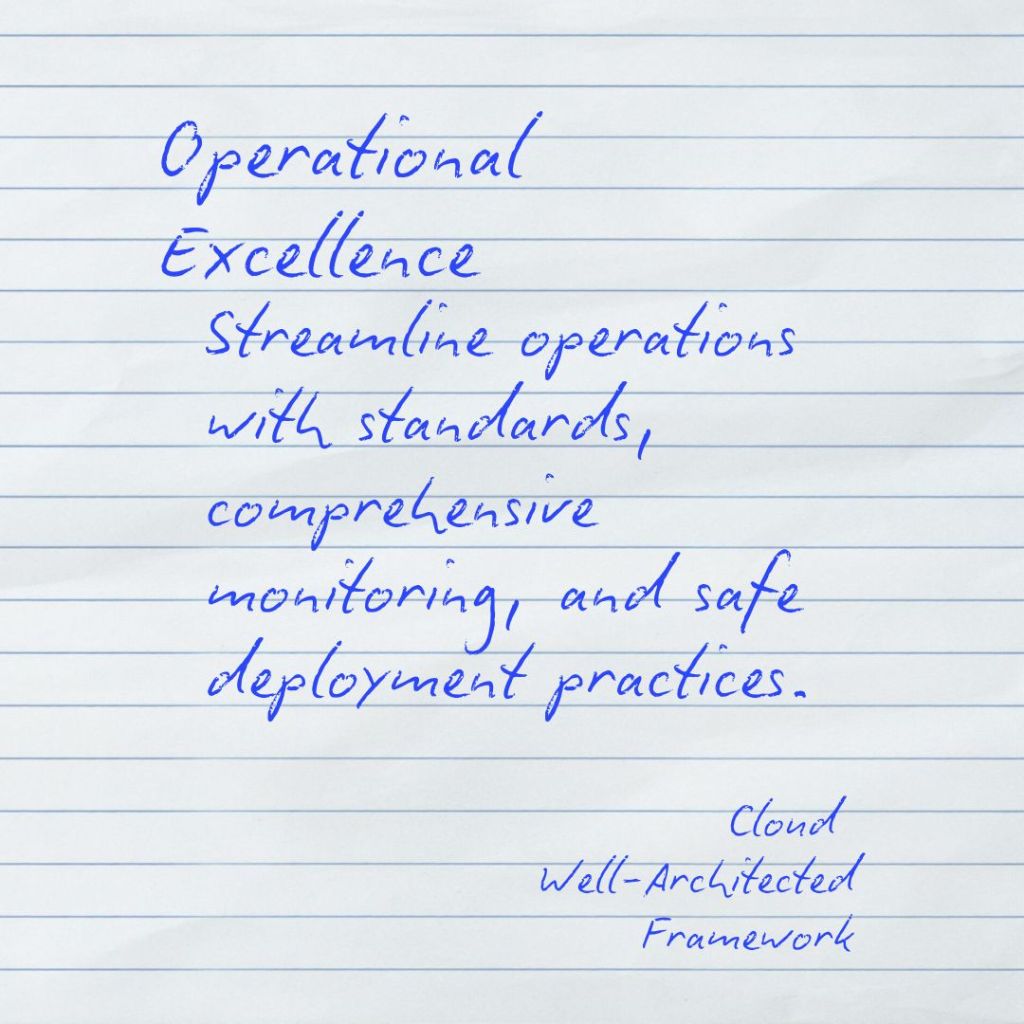 Operational
Excellence
Streamline operations
with standards,
comprehensive
monitoring, and safe
deployment practices.
Cloud
Well-Architected
Framework